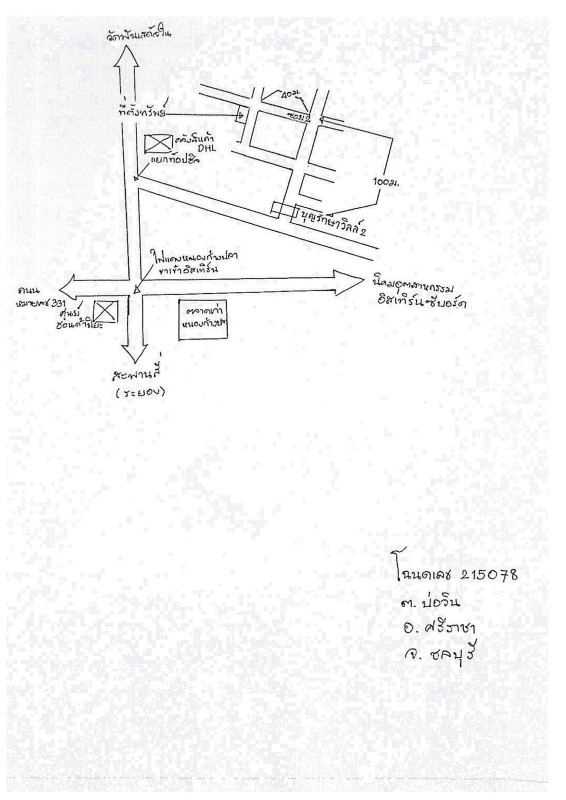 วัดพันเสด็จใน
40ม.
ที่ตั้งทรัพย์
ซอย 2
คลังสินค้า
DHL
แยกท๊อปฮิล
100ม.
บุญรักษาวิลล์ 2
ไฟแดงหนองก้างปลา
ขาเข้าอิสเทิร์น
ถนน
หมายเลข 331
นิคมอุตสาหกรรม
อิสเทิร์นซีบอร์ด
ศูนย์
ตลาดเก่า
หนองก้างปลา
สะพานสี่
(ระยอง)
โฉนดเลข 215078
ต. บ่อวิน
อ. ศรีราชา
จ. ชลบุรี